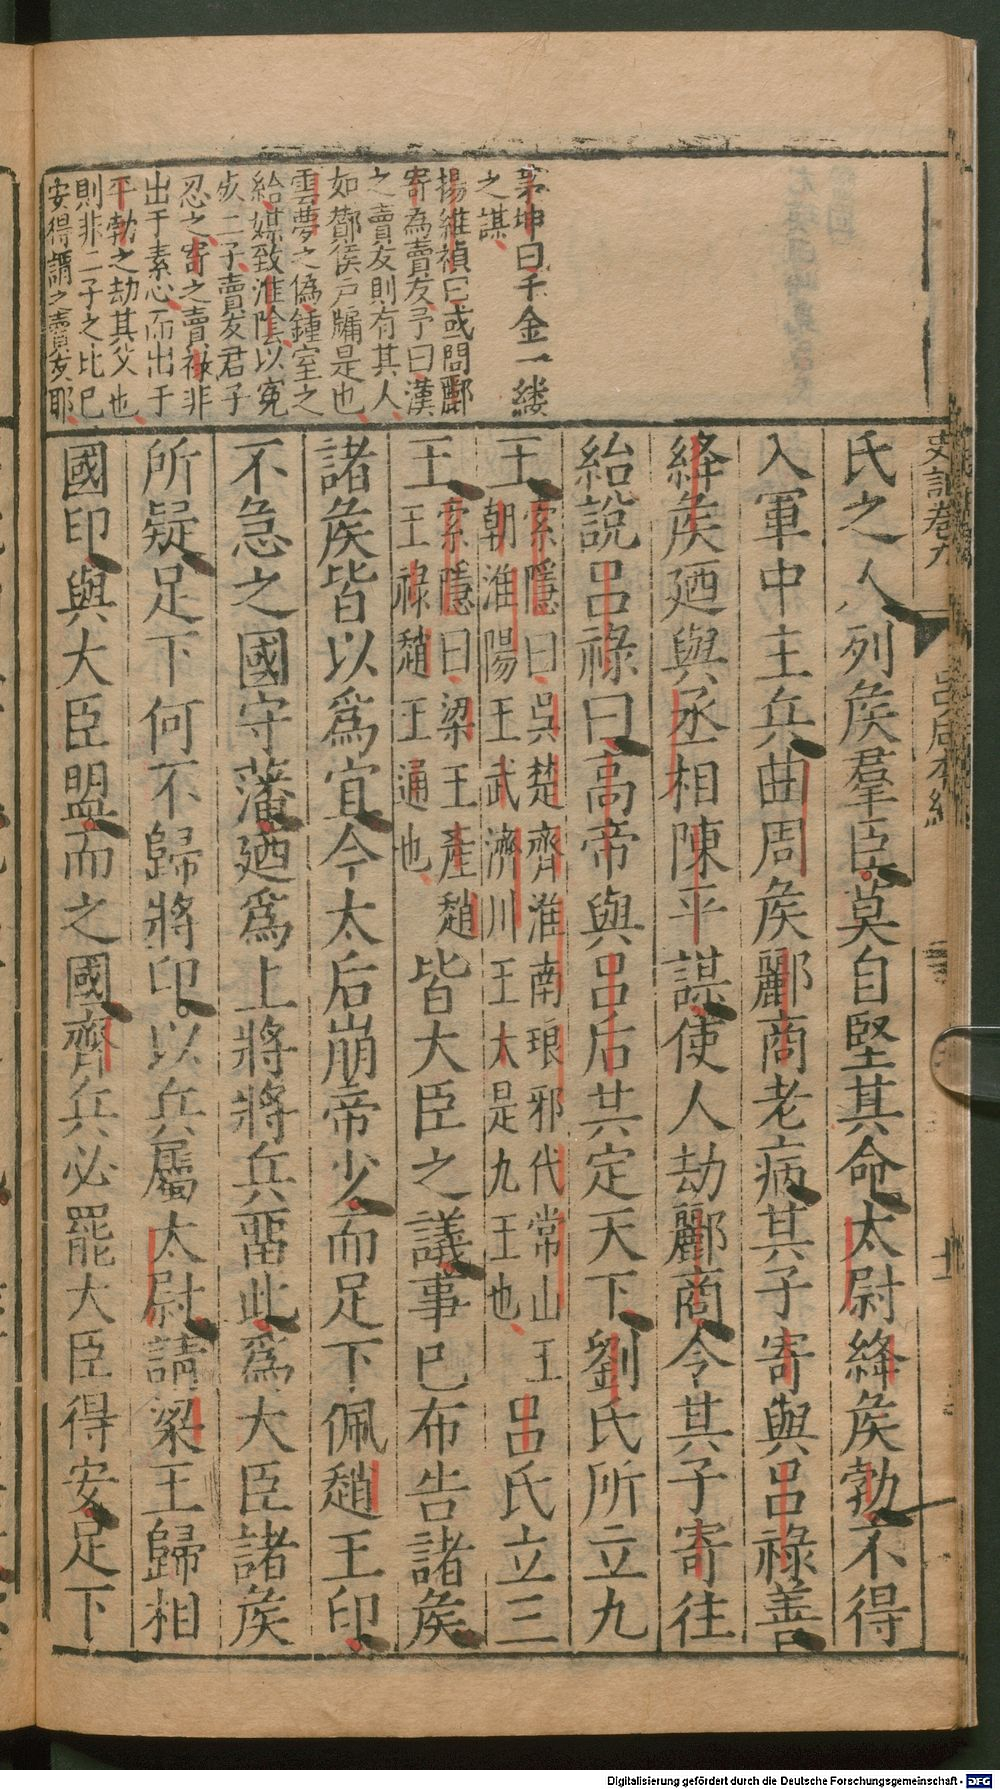 茅坤曰千金一縷
之謀
楊維禎曰或問酈
寄為賣友予曰漢
之賣友則有其人
如酇侯戶牖是也
雲夢之偽鍾室之
紿媒致淮陰以冤
死二子賣友君子
忍之寄之賣祿非
出于素心而出于
平勃之劫其父也
則非二子之比已
安得謂之賣友耶
史記卷九
呂后本紀
十
氏之人列矦羣臣莫自堅其命太尉絳矦勃不得
入軍中主兵曲周矦酈商老病其子寄與呂祿善
絳矦廼與丞相陳平謀使人劫酈商令其子寄往
紿說呂祿曰高帝與呂后共定天下劉氏所立九
王索隱曰吳楚齊淮南琅邪代常山王朝淮陽王武濟川王太是九王也呂氏立三
王索隱曰梁王產趙王祿趙王通也皆大臣之議事已布告諸矦
諸矦皆以爲宜今太后崩帝少而足下佩趙王印
不急之國守藩廼爲上將將兵畱此爲大臣諸矦
所疑足下何不歸將印以兵屬太尉請梁王歸相
國印與大臣盟而之國齊兵必罷大臣得安足下
Digitalisierung gefördert durch die Deutsche Forschungsgemeinschaft - DFG